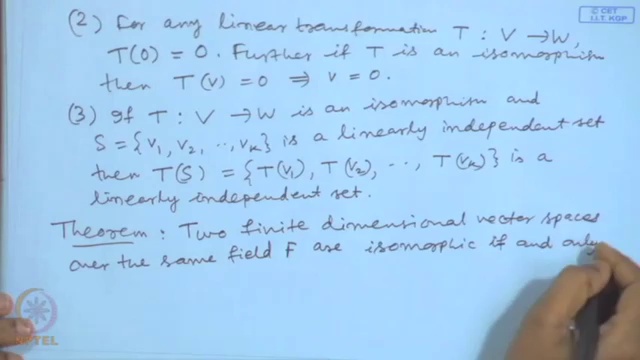 © CET
I.I.T. KGP
(2) For any linear transformation T : V → W,
T(0) = 0. Further if T is an isomorphism
then T(v) = 0 ⇒ v = 0.
(3) If T : V → W is an isomorphism and
S = {v₁, v₂, ··, vₖ} is a linearly independent set
then T(S) = {T(v₁), T(v₂), ··, T(vₖ)} is a
linearly independent set.
Theorem : Two finite dimensional vector spaces
over the same field F are isomorphic if and only
NPTEL